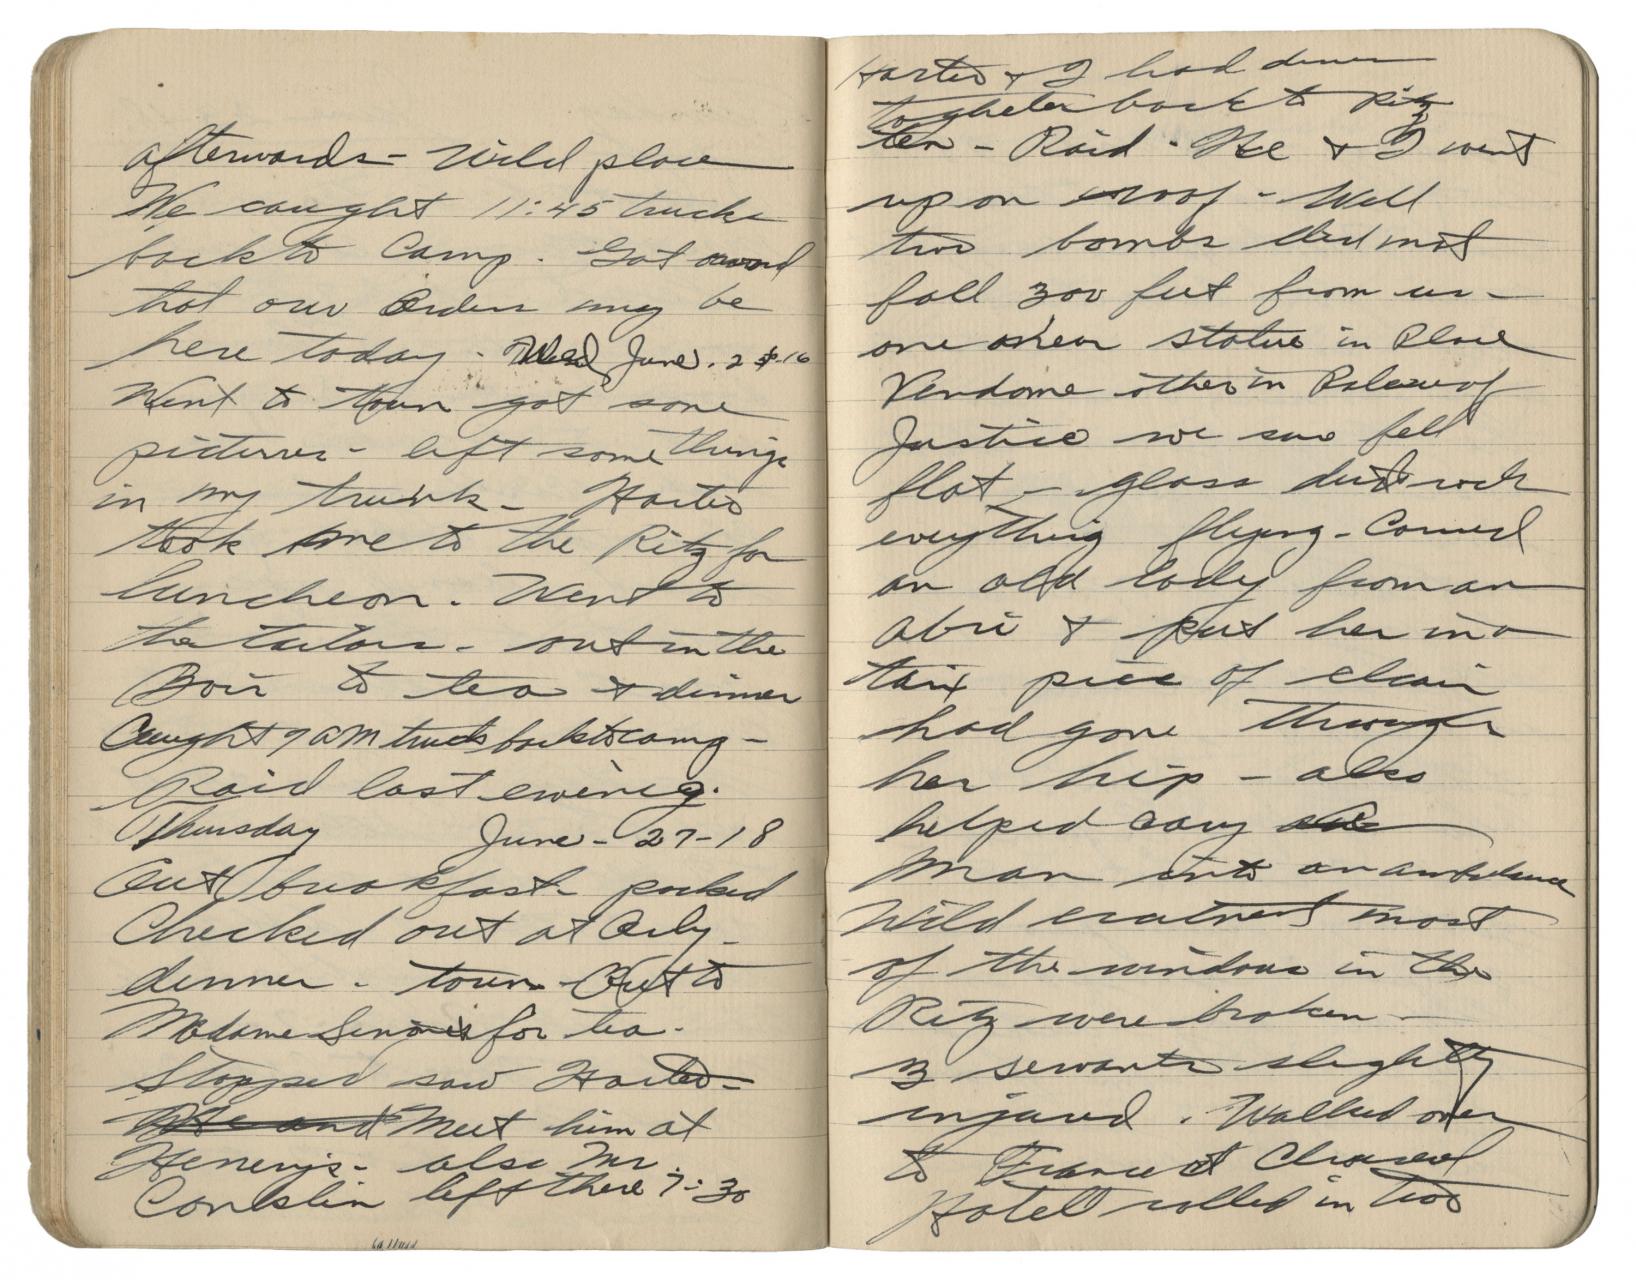 afterwards - Wild place
We caught 11:45 trucks
back to Camp. Got word
that our Orders may be
here today - Wed June. 2
Went to town got some
pictures - left some things
in my trunk - Harter
took me to the Ritz for
luncheon. Went to
the tailors - out in the
Bois to tea & dinner
Caught 9 AM truck back to camp -
Raid last evening.
Thursday June - 27-18
Out breakfast packed
Checked out at
dinner - town - Out to
Madame for tea -
Stopped saw Harter -
We and Meet him at
Henery's - also Mr.
Conklin left there 7:30
Harter & I had diner
togheter back to Ritz
ten - Raid - He & I went
up on roof - Well
two bombs did not
fall 300 feet from us -
one near statue in Place
Vendome other in Palace of
Justice we saw fell
flat - glass dirt rock
everything flying - Carried
an old lady from an
abri & put her in a
taxi piece of chair
had gone through
her hip - also
helped cary
man into an ambulance
Wild most
of the windows in the
Ritz were broken -
3 servants slightly
injured. Walked over
to France et Choiseul
Hotel rolled in two